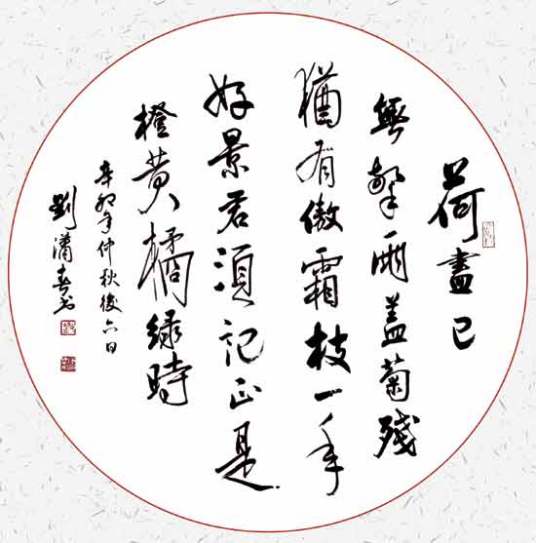 荷盡已
無擎雨蓋菊殘
猶有傲霜枝一年
好景君須記正是
橙黄橘緑時
辛卯年仲秋後六日
劉蒲春书